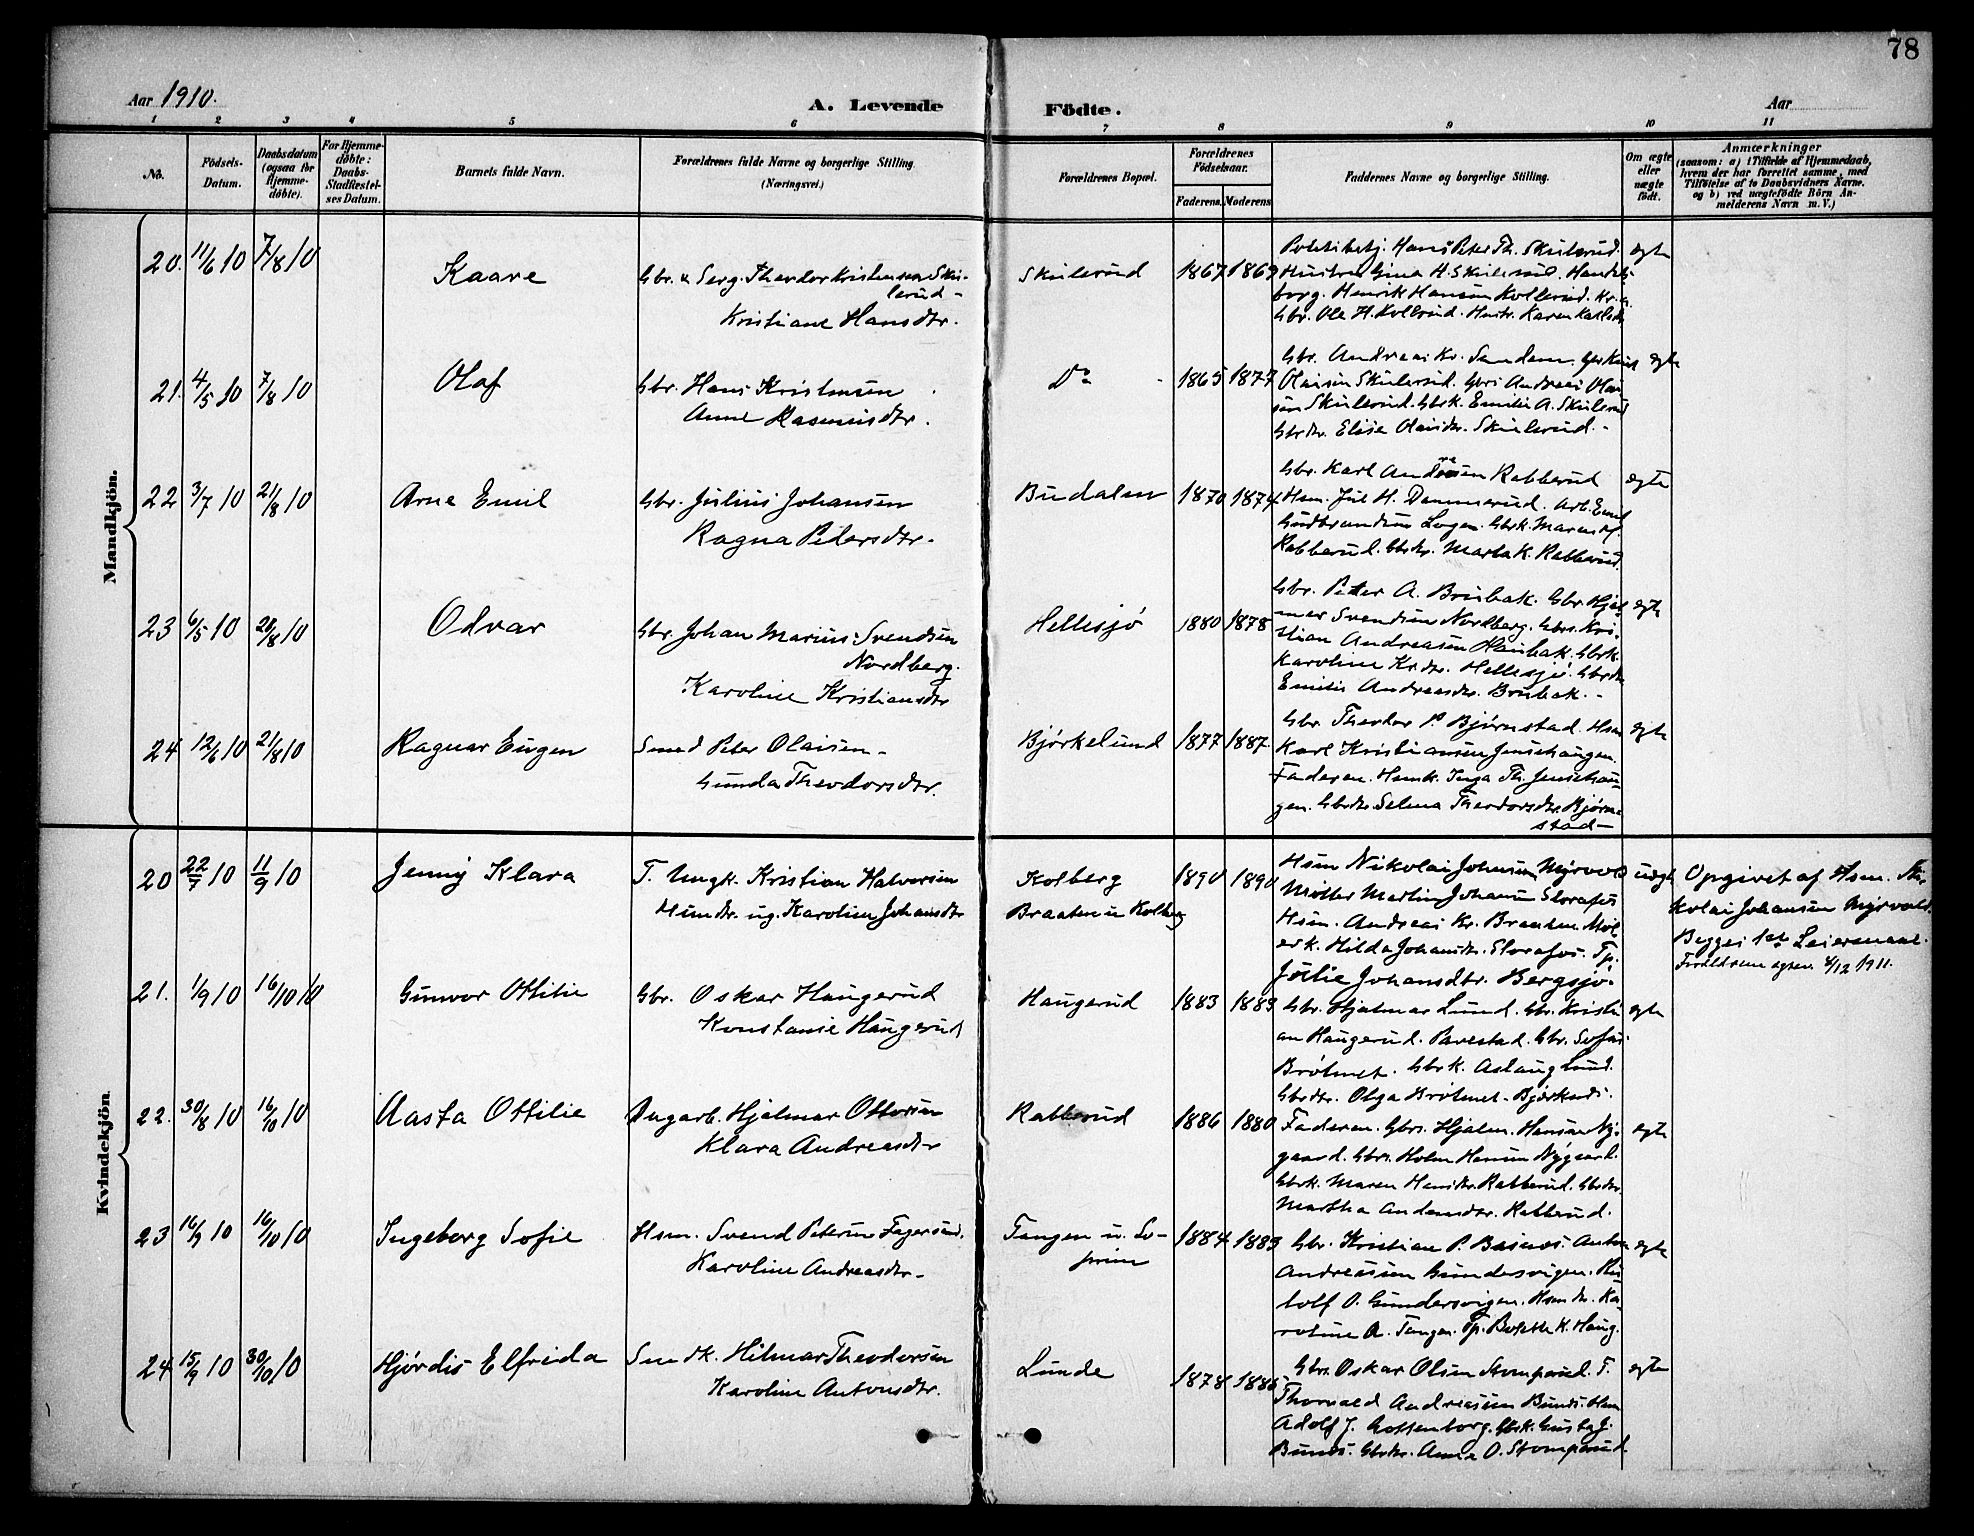 78
Aar 1910.
A. Levende
Födte.
Aar
1 2 3 4 5 6 7 8 9 10 11
No.
Födsels-Datum.
Daabsdatum (ogsaa for Hjemmedøbte).
For Hjemmedøbte: Daabs-Stadfæstelses Datum.
Barnets fulde Navn.
Forældrenes fulde Navne og borgerlige Stilling.
(Næringsvei.)
Forældrenes Bopæl.
Forældrenes Födselsaar.
Faderens. Moderens
Faddernes Navne og borgerlige Stilling.
Om ægte eller uægte födt.
Anmærkninger
(saasom: a) i Tilfælde af Hjemmedaab,
hvem der har forrettet samme, med
Tilføielse af to Daabsvidners Navne.
og b) ved uægtefødte Börn Anmelderens Navn m. V.)
Mandkjön.
20. 11/6 10 7/8 10 Kaare
Gbr. & Serg. Theodor Kristensen Skulerud -
Kristiane Hansdtr.
Skulerud 1867 1869
Hans Peter Th. Skulerud.
Hustru Gina H. Skulerud.
Henrik Hansen Kollerud. Kr.a.
Gbr. Ole H. Kollerud. Hustr. Karen
egte
21. 4/5 10 7/8 10 Olaf
Gbr. Hans Kristensen
Anne Rasmusdtr.
Do 1865 1877
Gbr. Andreas Kr.
Olaisen Skulerud. Gbrs. Andreas Olai-
sen Skulerud. Gbrk. Emilie A. Skulerud
Gbrdtr. Elise Olaisdtr. Skulerud. -
egte
22 3/7 10 21/8 10 Arne Emil
Gbr. Julius Johansen
Ragna Petersdtr.
Budalen 1870 1874
Gbr. Karl Andresen Rabberud
Hsm. Jul H. Dammerud. Arb. Emil
Gudbrandsen Gbrk. Maren
Rabberud. Gbrdtr. Marta K. Rabberud.
egte
23 6/5 10 28/8 10 Odvar
Gbr. Johan Marius Svendsen
Nordberg.
Karoline Kristiansdtr
Hellesjø 1880 1878
Gbr. Peter A. Brubak. Gbr. Hjal-
mar Svendsen Nordberg. Gbrs. Kri-
stian Andreasen Haubak. Gbrk.
Karoline Kr.dtr. Hellesjø. Gbrdtr.
Emilie Andreasdtr. Brubak. -
egte
24 12/6 10 21/8 10 Ragnar Eugen
Smed Peter Olaisen -
Gunda Theodorsdtr.
Bjørkelund 1877 1887.
Gbr. Theodor P. Bjørnstad. Hsm
Karl Kristiansen Jensehaugen.
Faderen. Hsmk. Inga Th. Jensehau-
gen. Gbrdtr. Selma Theodorsdtr. Bjørn-
stad -
egte
Kvindekjön.
20 22/7 10 11/9 10 Jenny Klara
T. Ungk. Kristian Halvorsen
Hsmdtr. ug. Karoline Johansdtr
Kolberg
Braaten u Kolberg
1890 1890
Hsm Nikolai Johansen Myrvold
Møller Martin Johansen Slorafos
Hsm. Andreas Kr. Braaten. Møl-
erk. Hilda Johansdtr. Slorafos. Tp.
Julie Johansdtr. Bergsjø.
uegte
Opgivet af Hsm. Ni-
kolai Johansen Myrvold.
Begges 1ste Leiermaal.
Foreldrene egtev. 4/12 1911.
21. 1/9 10 16/10 10 Gunvor Ottilie
Gbr. Oskar Haugerud
Konstanse Haugerud
Haugerud 1883 1883
Gbr. Hjalmar Lund. Gbr. Kristi-
an Haugerud. Parestad. Gbr. Sofus
Brøtmet. Gbrk. Aslaug Lund.
Gbrdtr. Olga Brøtmet.
egte
22. 30/8 10 16/10 10 Aasta Ottilie
Dagarb. Hjalmar Ottersen
Klara Andreasdtr
Rabberud 1886 1880
Faderen. Gbrs. Hjalm. Hansen Ny-
gaard. Gbrs. Holm Hansen Nygaard.
Gbrk. Maren Hansdtr. Rabberud. Gbrdtr.
Martha Andersdtr. Rabberud.
egte
23 16/9 10 16/10 10 Ingeborg Sofie
Hsm. Svend Petersen Fagersand.
Karoline Andreasdtr -
Tangen u.
1884 1883
Gbr. Kristian P. Anton
Andreassen Gundersvigen. Ru-
dolf O. Gundersvigen. Hsmdtr. Ka-
roline A. Tangen. Tp. Bolette K. Haug.
egte
24 15/9 10 30/10 10 Hjørdis Elfrida
Smedk. Hilmar Theodorsen
Karoline Antonsdtr.
Lunde 1878 1885
Gbr. Oskar Olsen Stomperud. T.
Thorvald Andreassen Bunes. Hsm
Adolf J. Gottenborg. Gbrk. Gusta J.
Bunes. Gbrdtr. Anna O. Stomperud.
egte